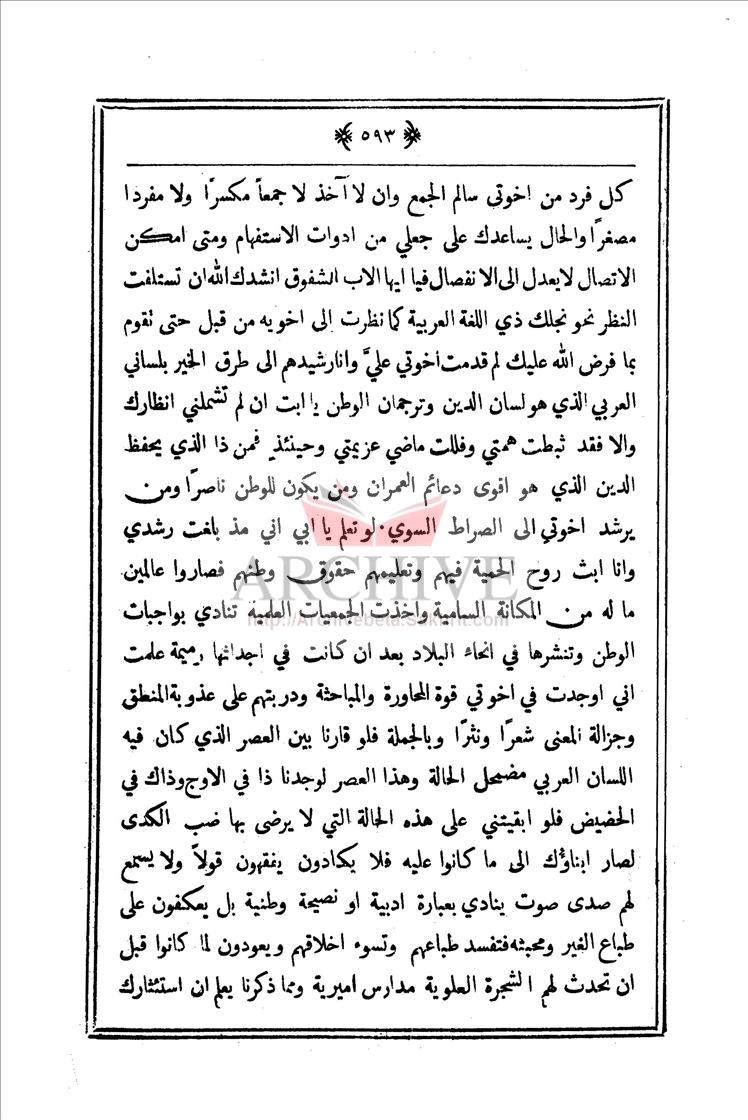 ﴿ ٥٩٣ ﴾
كل فرد من اخوتي سالم الجمع وان لا آخذ لا جمعاً مكسرًا ولا مفردا
مصغرًا والحال يساعدك على جعلي من ادوات الاستفهام ومتى امكن
الاتصال لا يعدل الى الانفصال فيا ايها الاب الشفوق انشدك الله ان تستلفت
النظر نحو نجلك ذي اللغة العربية كما نظرت الى اخويه من قبل حتى تقوم
بما فرض الله عليك لم قدمت اخوتي عليَّ وانا رشيدهم الى طرق الخير بلساني
العربي الذي هو لسان الدين وترجمان الوطن يا ابت ان لم تشملني انظارك
والا فقد ثبطت همتي وفللت ماضي عزيمتي وحينئذٍ فمن ذا الذي يحفظ
الدين الذي هو اقوى دعائم العمران ومن يكون للوطن ناصرًا ومن
يرشد اخوتي الى الصراط السوي· لو تعلم يا ابي اني مذ بلغت رشدي
وانا ابث روح الحمية فيهم وتعليمهم حقوق وطنهم فصاروا عالمين
ما له من المكانة السامية واخذت الجمعيات العلمية تنادي بواجبات
الوطن وتنشرها في انحاء البلاد بعد ان كانت في اجداثها رميمة علمت
اني اوجدت في اخوتي قوة المحاورة والمباحثة ودربتهم على عذوبة المنطق
وجزالة المعنى شعرًا ونثرًا وبالجملة فلو قارنا بين العصر الذي كان فيه
اللسان العربي مضمحل الحالة وهذا العصر لوجدنا ذا في الاوج وذاك في
الحضيض فلو ابقيتني على هذه الحالة التي لا يرضى بها ضب الكدى
لصار ابناؤك الى ما كانوا عليه فلا يكادون يفقهون قولاً ولا يسمع
لهم صدى صوت ينادي بعبارة ادبية او نصيحة وطنية بل يعكفون على
طباع الغير ومحبته فتفسد طباعهم وتسوء اخلاقهم ويعودون لما كانوا قبل
ان تحدث لهم الشجرة العلوية مدارس اميرية ومما ذكرنا يعلم ان استئثارك
ARCHIVE
http://Archivebeta.Sakhrit.com